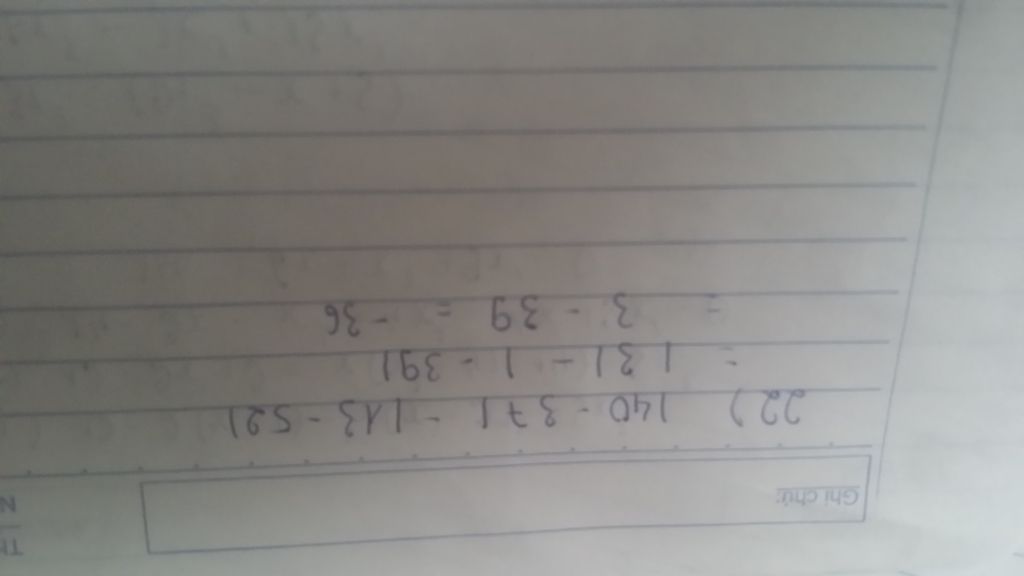 Ghi chú:
22) |40 - 37| - |13 - 52|
= |3| - |-39|
= 3 - 39 = -36